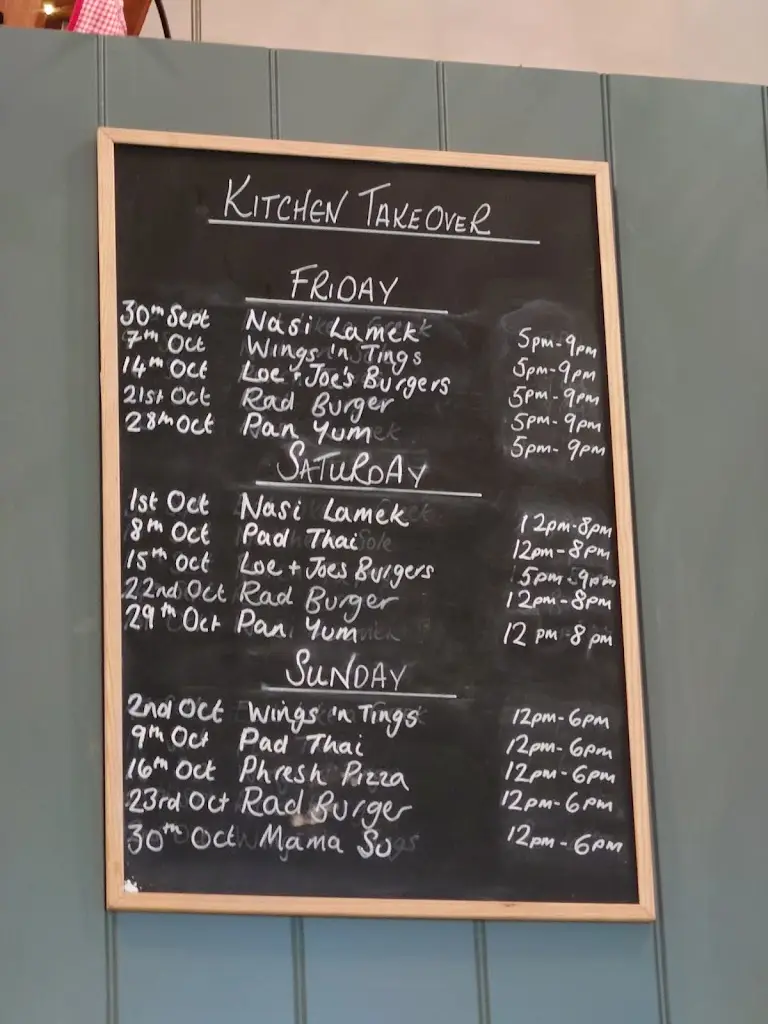 KITCHEN TAKEOVER
FRIDAY
30th Sept Nasi Lamek 5pm-9pm
7th Oct Wings 'n Tings 5pm-9pm
14th Oct Loe + Joe's Burgers 5pm-9pm
21st Oct Rad Burger 5pm-9pm
28th Oct Pan Yum 5pm-9pm
SATURDAY
1st Oct Nasi Lamek 12pm-8pm
8th Oct Pad Thai 12pm-8pm
15th Oct Loe + Joes Burgers 5pm-9pm
22nd Oct Rad Burger 12pm-8pm
29th Oct Pan Yum 12pm-8pm
SUNDAY
2nd Oct Wings 'n Tings 12pm-6pm
9th Oct Pad Thai 12pm-6pm
16th Oct Phresh Pizza 12pm-6pm
23rd Oct Rad Burger 12pm-6pm
30th Oct Mama Su 12pm-6pm